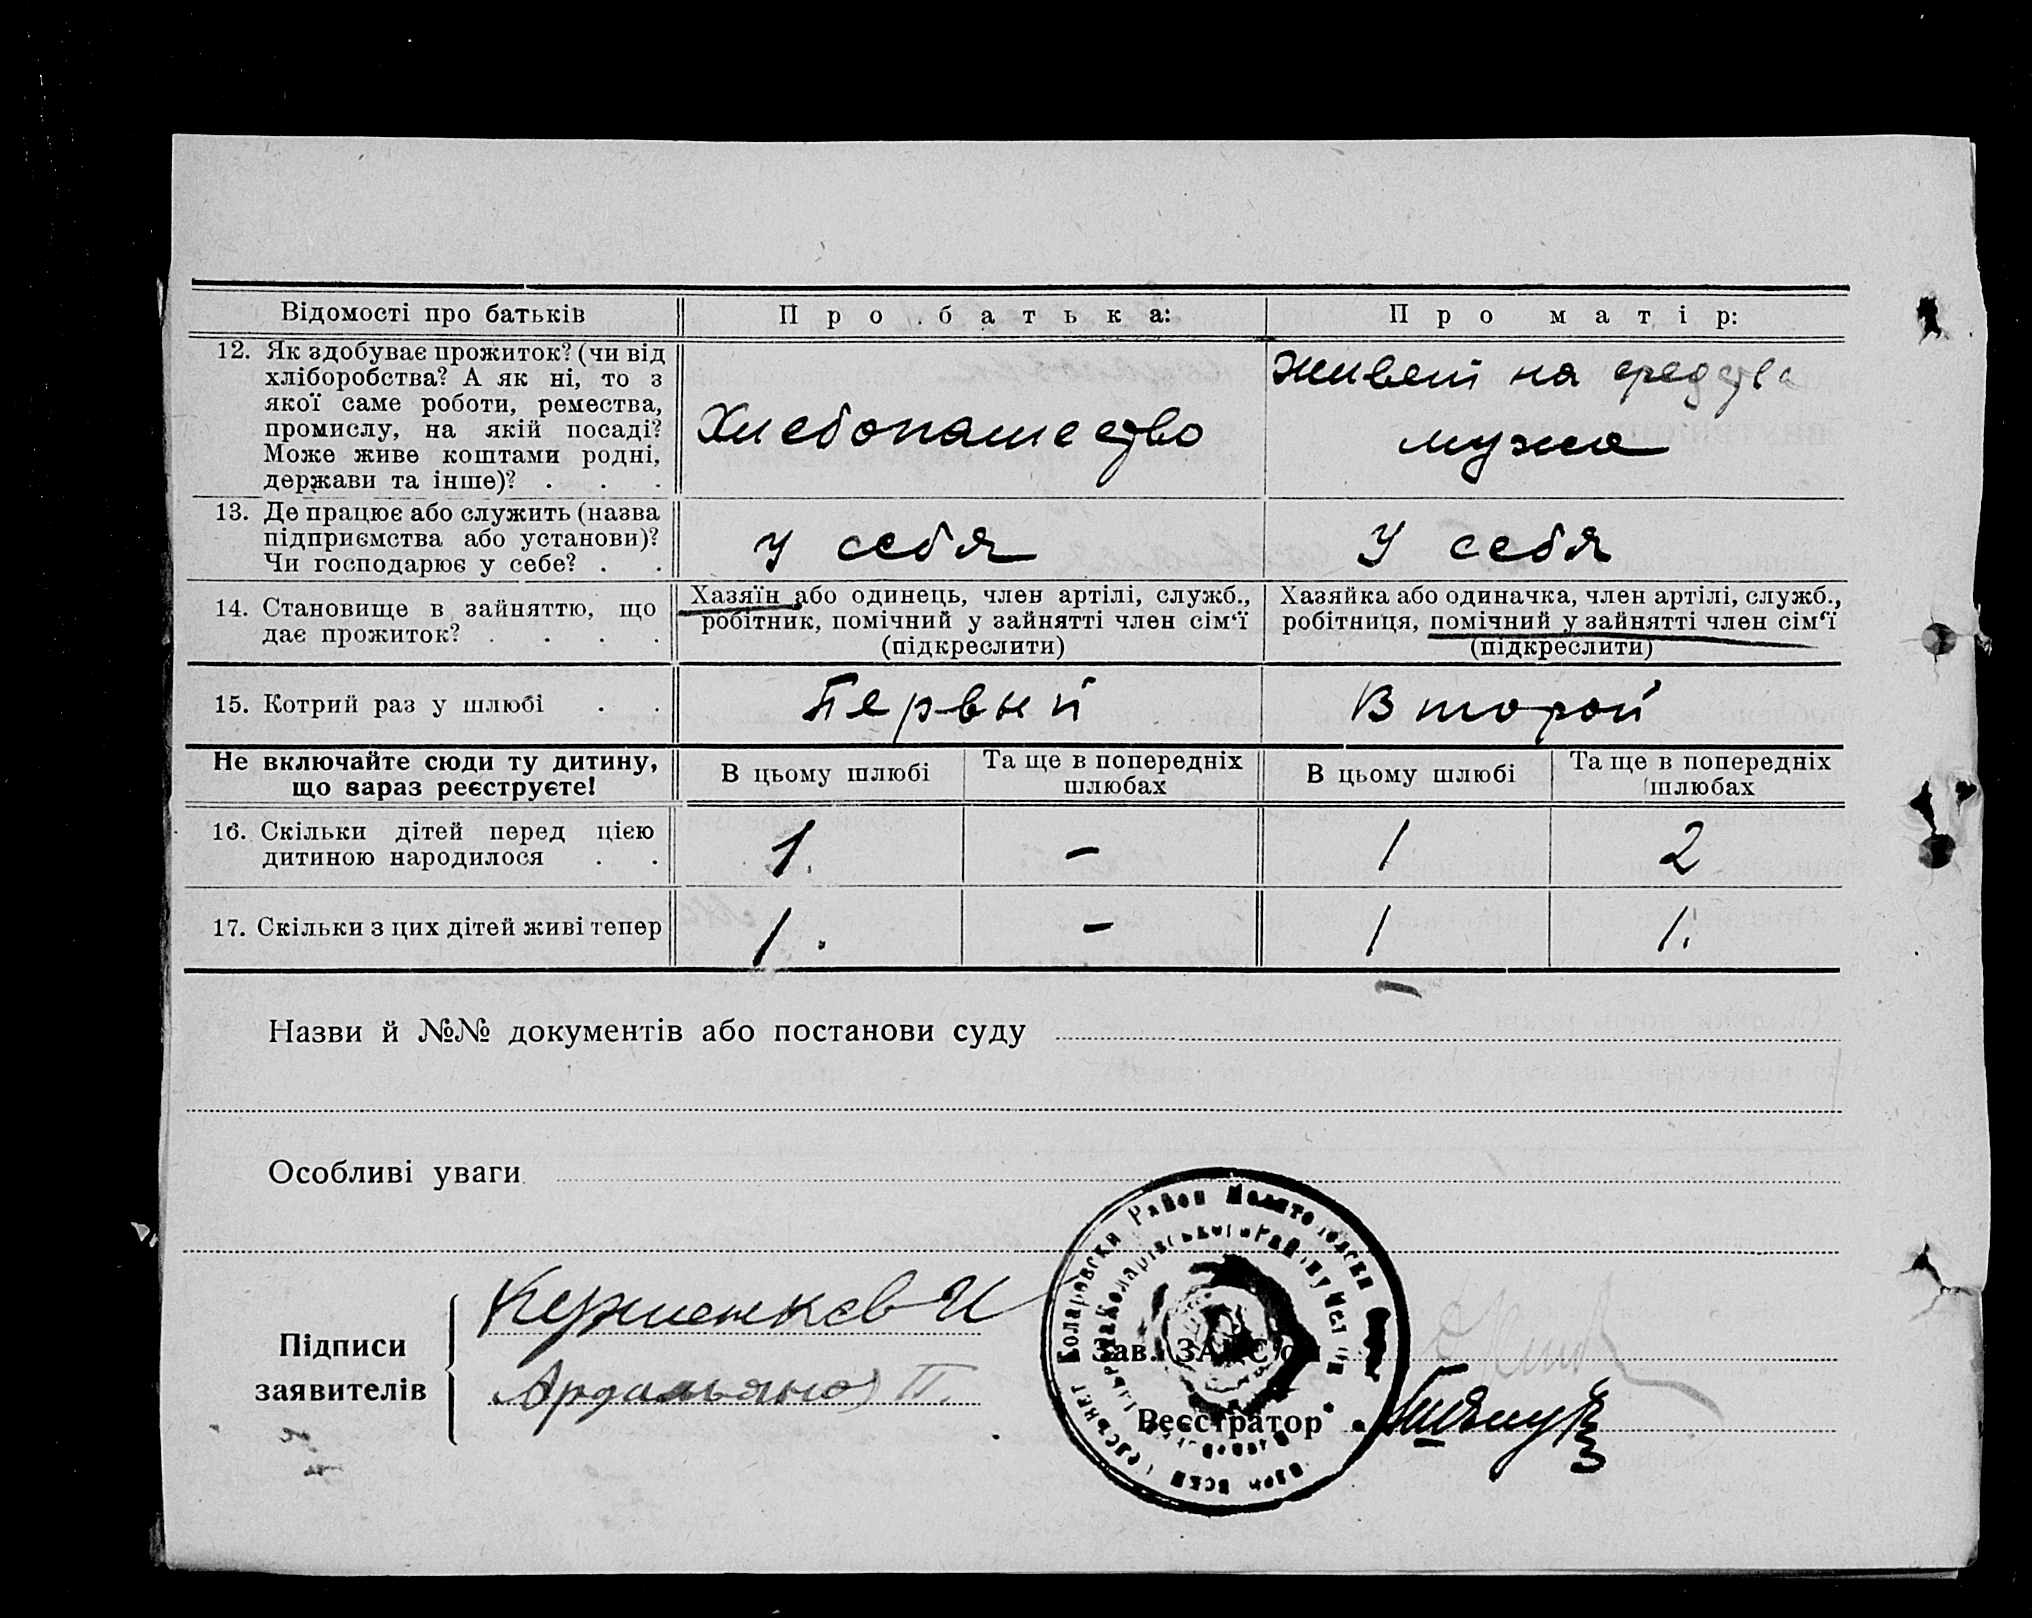 Відомості про батьків
Про батька:
Про матір:
12. Як здобуває прожиток? (чи від
хліборобства? А як ні, то з
якої саме роботи, ремества,
промислу, на якій посаді?
Може живе коштами родні,
держави та інше)? . . .
Хлебопашество
Живет на средства
мужа
13. Де працює або служить (назва
підприємства або установи)?
Чи господарює у себе? . .
у себя
У себя
14. Становище в зайняттю, що
дає прожиток? . . . .
Хазяїн або одинець, член артілі, служб.,
робітник, помічний у зайнятті член сім'ї
(підкреслити)
Хазяйка або одиначка, член артілі, служб.,
робітниця, помічний у зайнятті член сім'ї
(підкреслити)
15. Котрий раз у шлюбі . .
Первый
Второй
Не включайте сюди ту дитину,
що зараз реєструєте!
В цьому шлюбі
Та ще в попередніх
шлюбах
В цьому шлюбі
Та ще в попередніх
шлюбах
16. Скільки дітей перед цією
дитиною народилося . .
1.
-
1
2
17. Скільки з цих дітей живі тепер
1.
-
1
1.
Назви й №№ документів або постанови суду
Особливі уваги
Підписи
заявителів
Кержиенков И
Ардальянов П.
Коларовски Район
Зав. ЗАГС'ом
Реєстратор